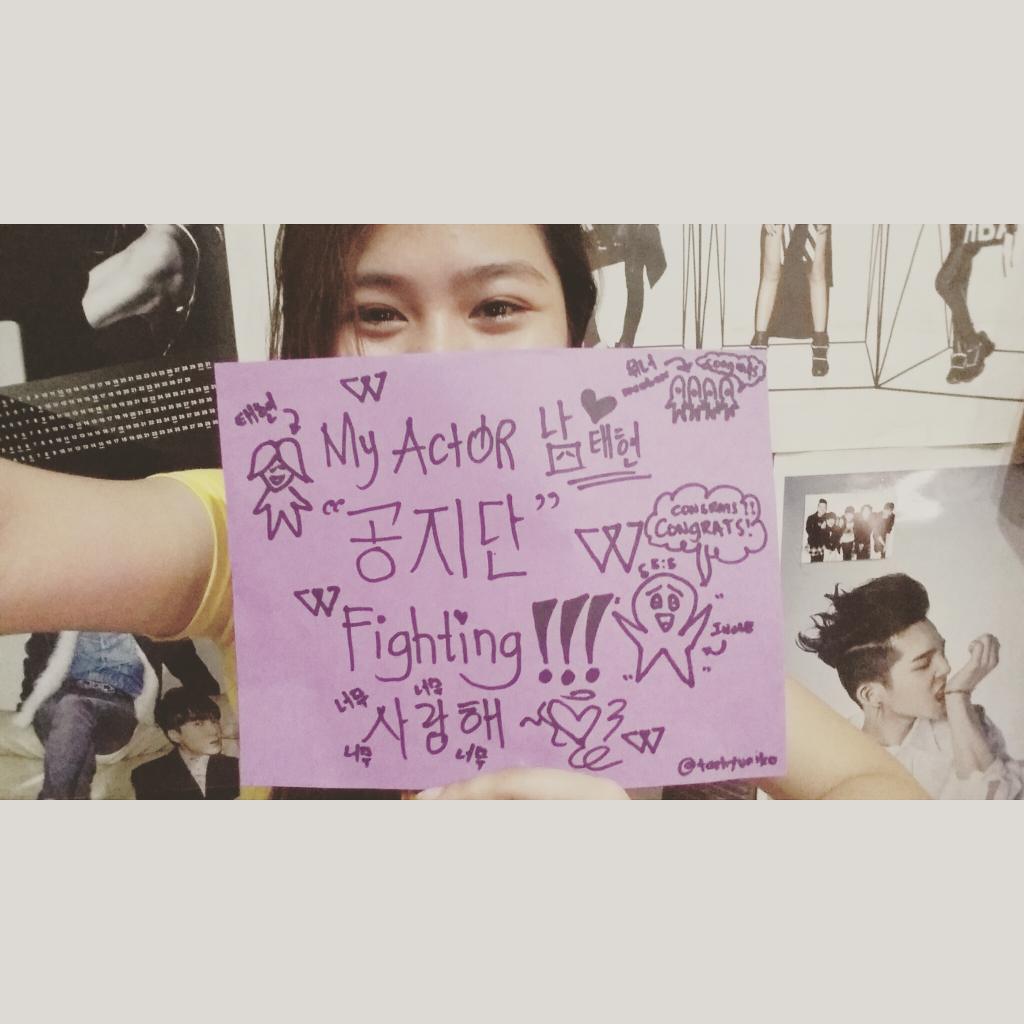 위너
member
Congrats
태현
W
My Actor 남♥태현
"공지단"
W
CONGRATS!!
CONGRATS!
W
Fighting!!!
너무 너무
사랑해
너무 너무
W